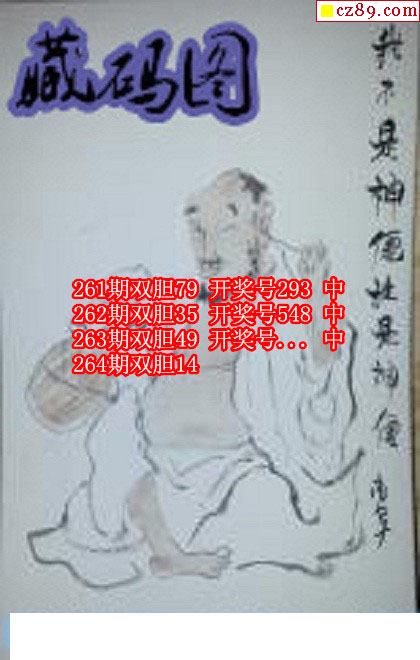 cz89.com
藏码图
261期双胆79 开奖号293 中
262期双胆35 开奖号548 中
263期双胆49 开奖号... 中
264期双胆14
我不是神僊谁是神僊